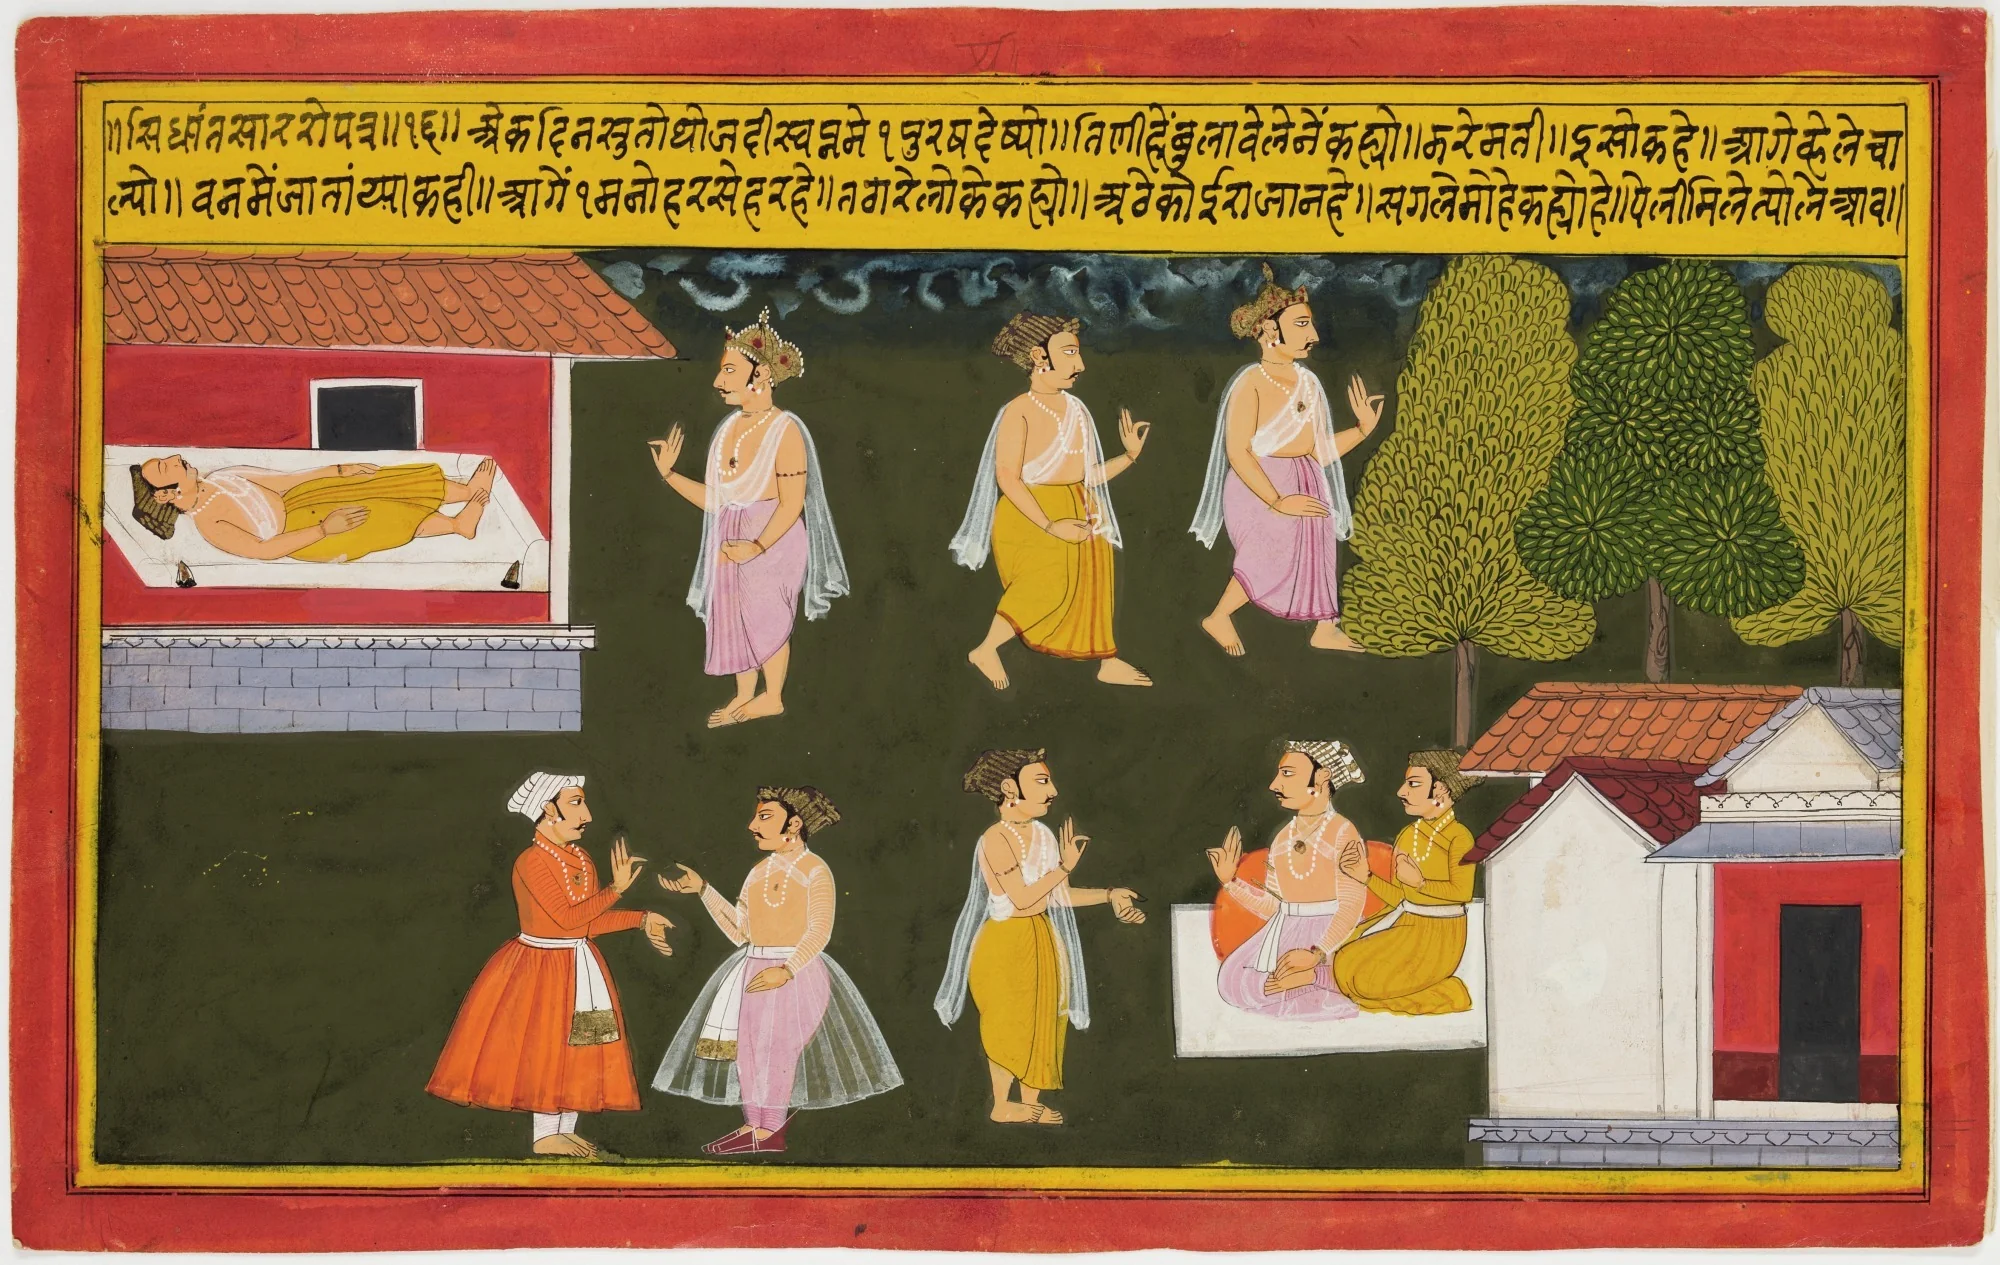 ॥सिद्धांतसाररोपत्र॥१६॥ अेकदिनसुतोथोजदीस्वप्नमे१पुरषदेष्यो॥तिणीह्नेंबुलावेलेनेंकह्यो॥करेमती॥इसोकहे॥आगेव्हेलेचा
ल्यो॥ वनमेंजातांय्साकही॥आगें१मनोहरसेहरहे॥तठारेलोकेकह्यो॥अठेकोईराजानहे॥सगलेमोहेकह्योहे॥पेलीमिलेत्योलेआव॥